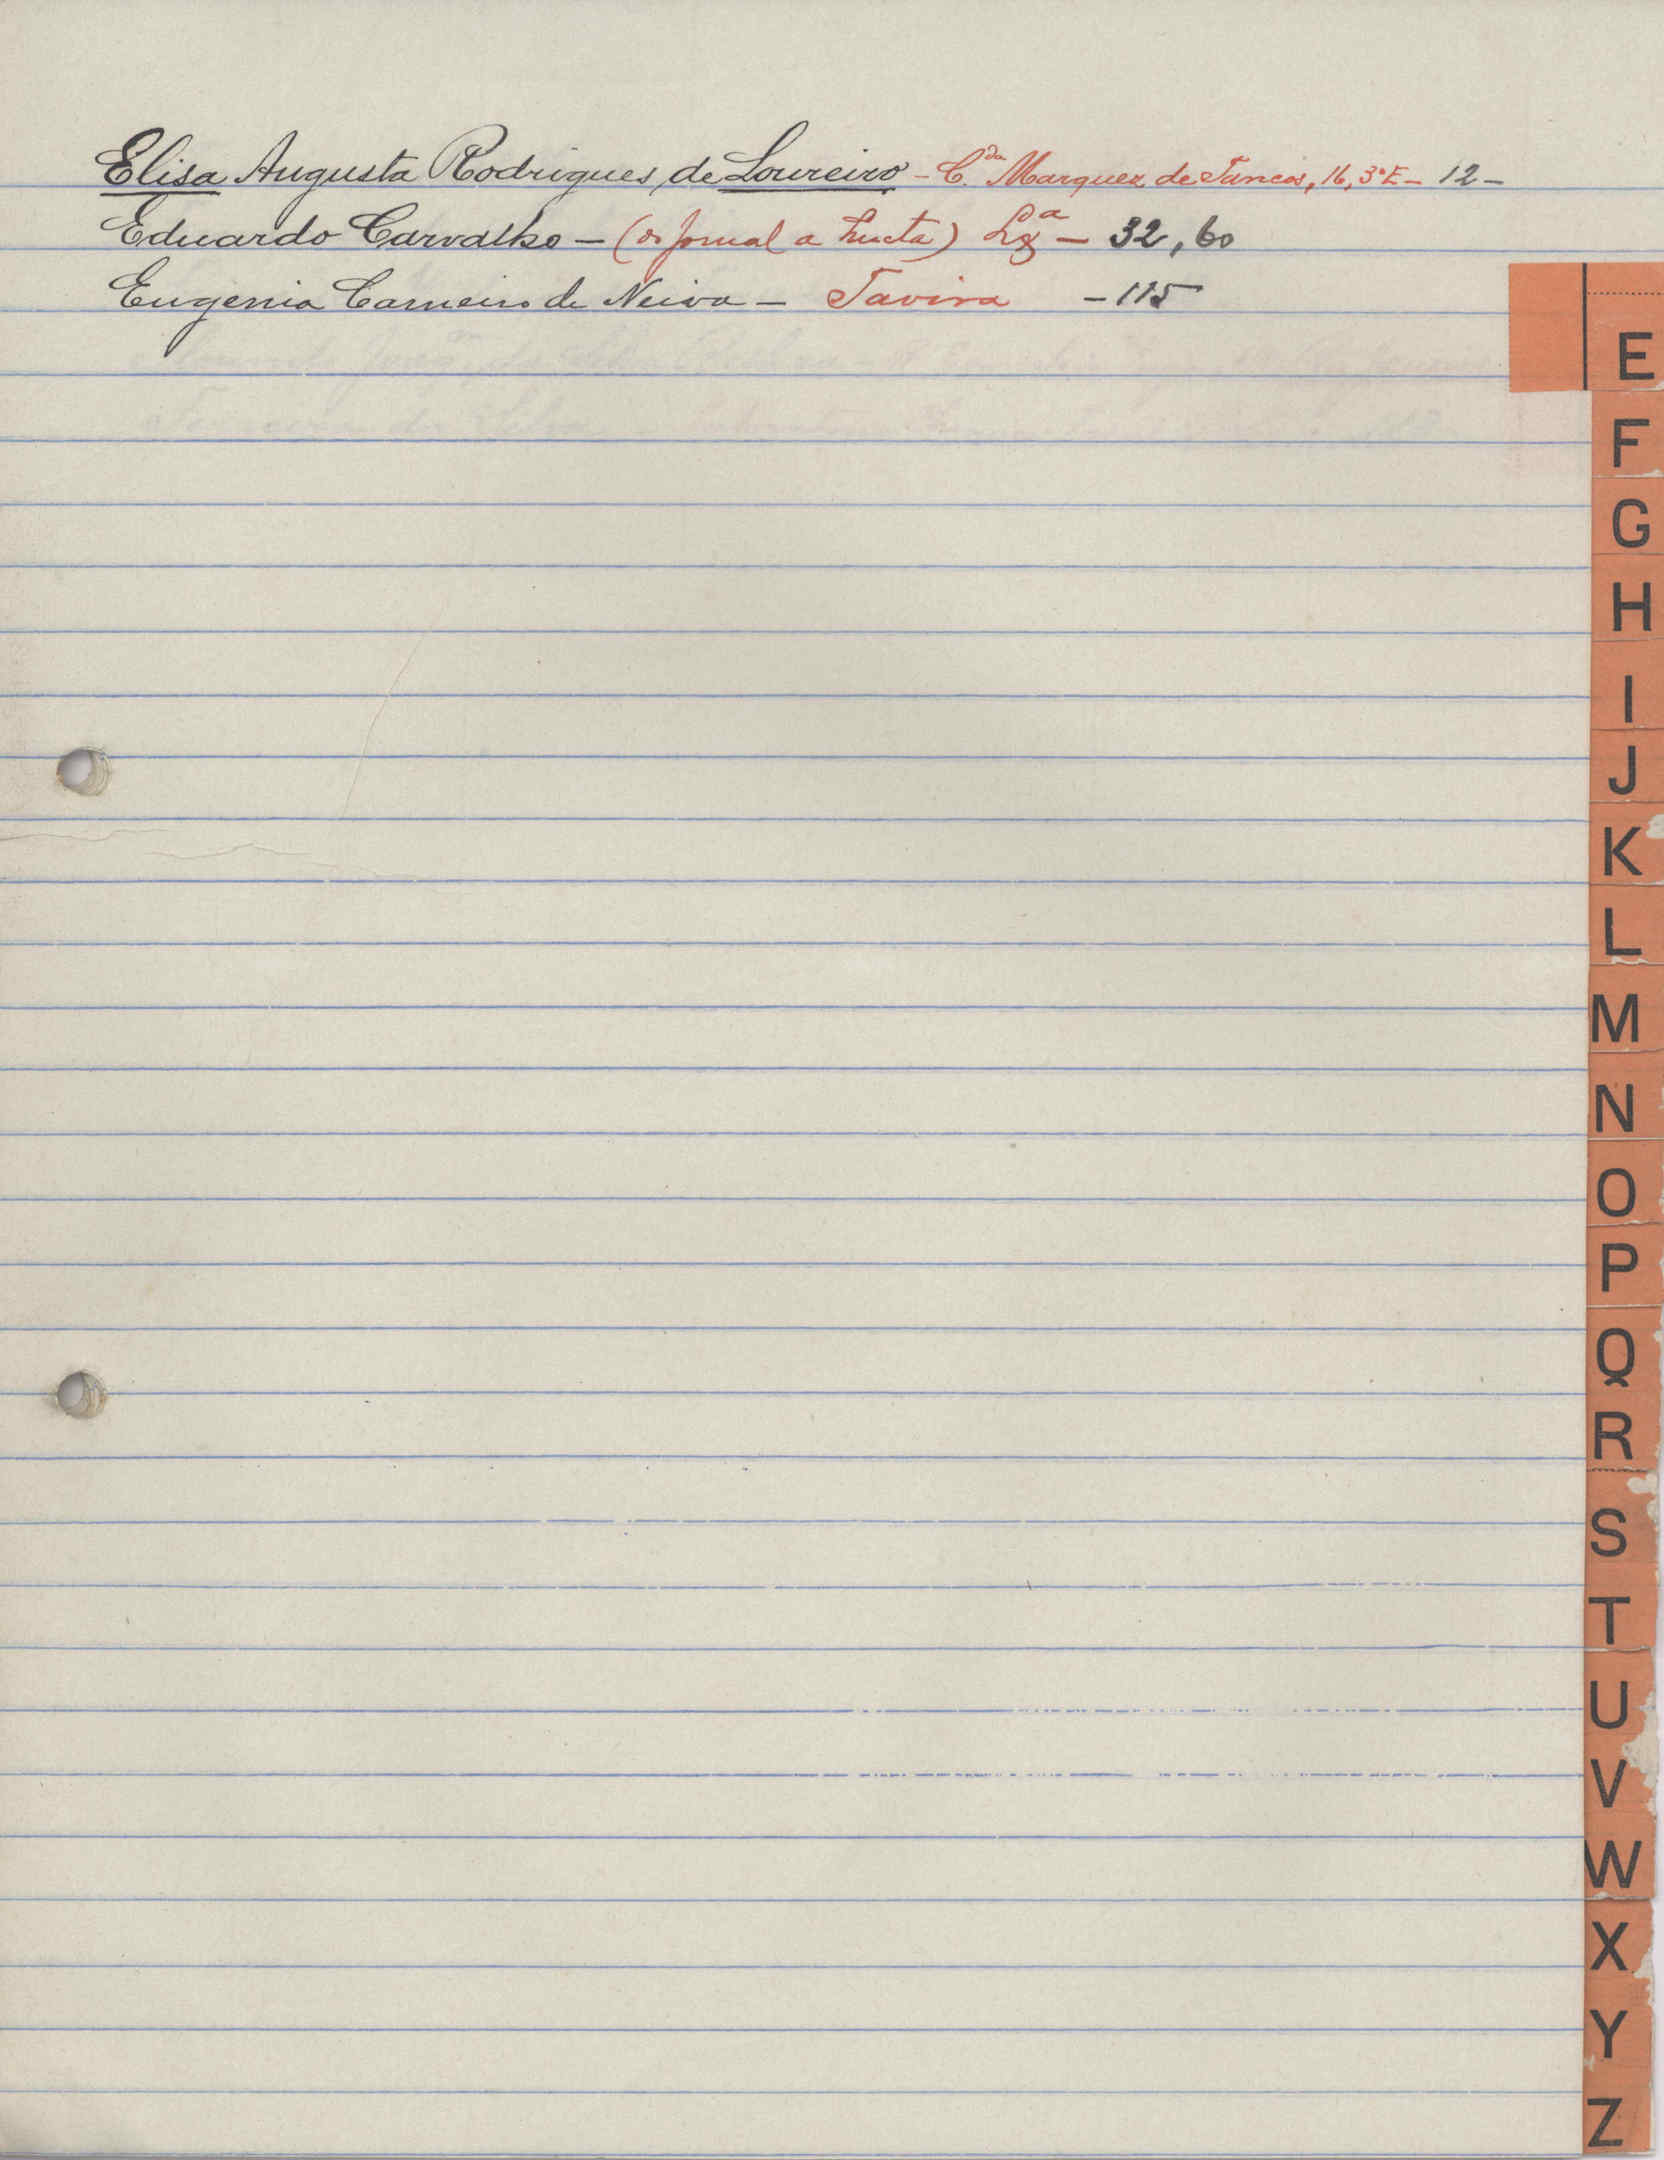 Elisa Augusta Rodrigues de Loureiro - C.da Marquez de Tancos, 16, 3º E - 12 -
Eduardo Carvalho - (do jornal a Lucta) Lxª - 32, 60
Eugenia Carneiro de Neiva - Tavira - 115
E
F
G
H
I
J
K
L
M
N
O
P
Q
R
S
T
U
V
W
X
Y
Z